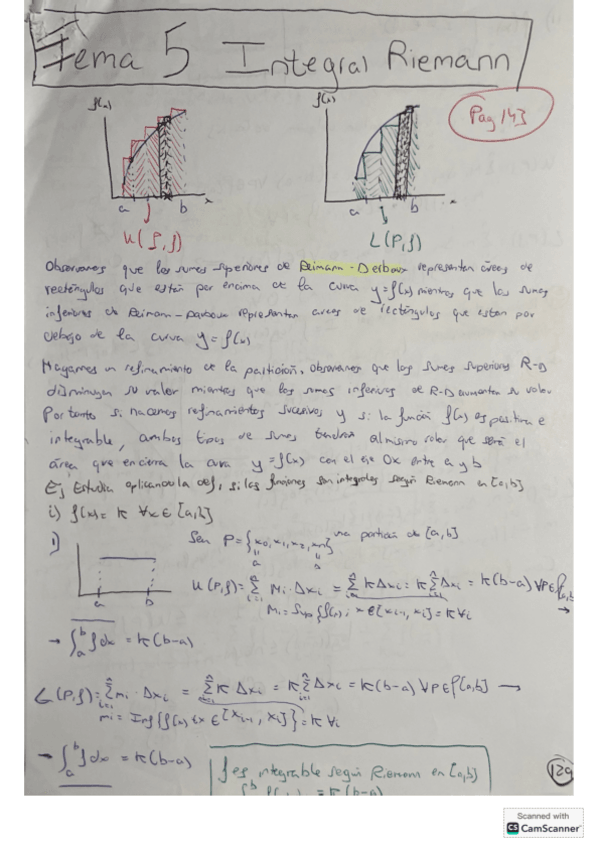 Tema 5 Integral Riemann
Pag 143
f(x)
f(x)
a b x
a b x
U(P,f)
L(P,f)
Observamos que las sumas superiores de Reimann-Derboux representan áreas de
rectángulos que están por encima de la curva y=f(x) mientras que las sumas
inferiores de Reimann-Darboux representan areas de rectángulos que estan por
debajo de la curva y=f(x)
Hagamos un refinamiento de la partición, observamos que las sumas superiores R-D
disminuyen su valor mientras que las sumas inferiores de R-D aumentan su valor
Por tanto si hacemos refinamientos sucesivos y si la función f(x) es positiva e
integrable, ambos tipos de sumas tendran al mismo valor que será el
área que encierra la curva y=f(x) con el eje Ox entre a y b
Ej Estudia aplicando la def, si las funciones son integrables según Riemann en [a,b]
i) f(x)=K ∀x∈[a,b]
i) Sea P={x₀,x₁,x₂,xₙ} una partición de [a,b]
a b
a b
U(P,f)=∑ Mi·Δxi = ∑ KΔxi = K∑Δxi = K(b-a) ∀P∈P[a,b] →
Mi=Sup{f(x): x∈[xi-1, xi]=K ∀i
→ ∫ₐᵇ f dx = K(b-a)
L(P,f)=∑ mi·Δxi = ∑ K Δxi = K∑ Δxi = K(b-a) ∀P∈P[a,b] →
mi=Inf{f(x) : x∈[xi-1, xi]}=K ∀i
→ ∫ₐᵇ f dx = K(b-a)
f es integrable según Riemann en [a,b]
= K(b-a)
129
Scanned with
CS CamScanner